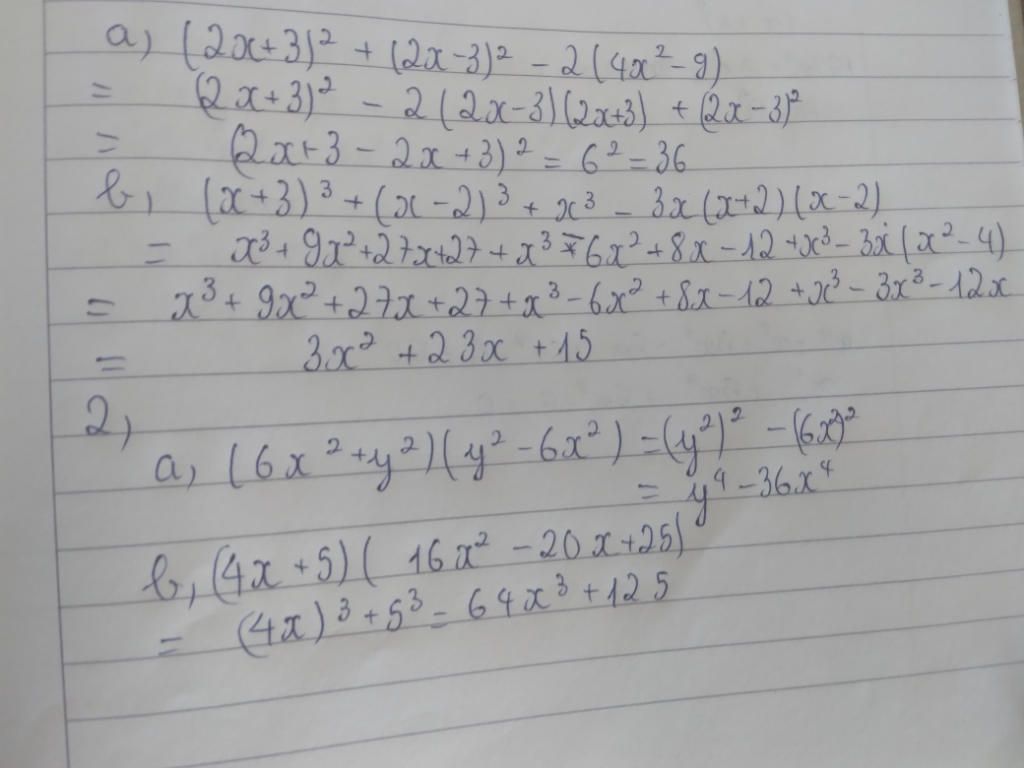 a, (2x+3)² + (2x-3)² - 2(4x²-9)
= (2x+3)² - 2(2x-3)(2x+3) + (2x-3)²
= (2x+3 - 2x+3)² = 6² = 36
b, (x+3)³ + (x-2)³ + x³ - 3x(x+2)(x-2)
= x³ + 9x² + 27x + 27 + x³ - 6x² + 8x - 12 + x³ - 3x(x² - 4)
= x³ + 9x² + 27x + 27 + x³ - 6x² + 8x - 12 + x³ - 3x³ - 12x
= 3x² + 23x + 15
2,
a, (6x² + y²)(y² - 6x²) = (y²)² - (6x²)²
= y⁴ - 36x⁴
b, (4x + 5)( 16x² - 20x + 25)
= (4x)³ + 5³ = 64x³ + 125